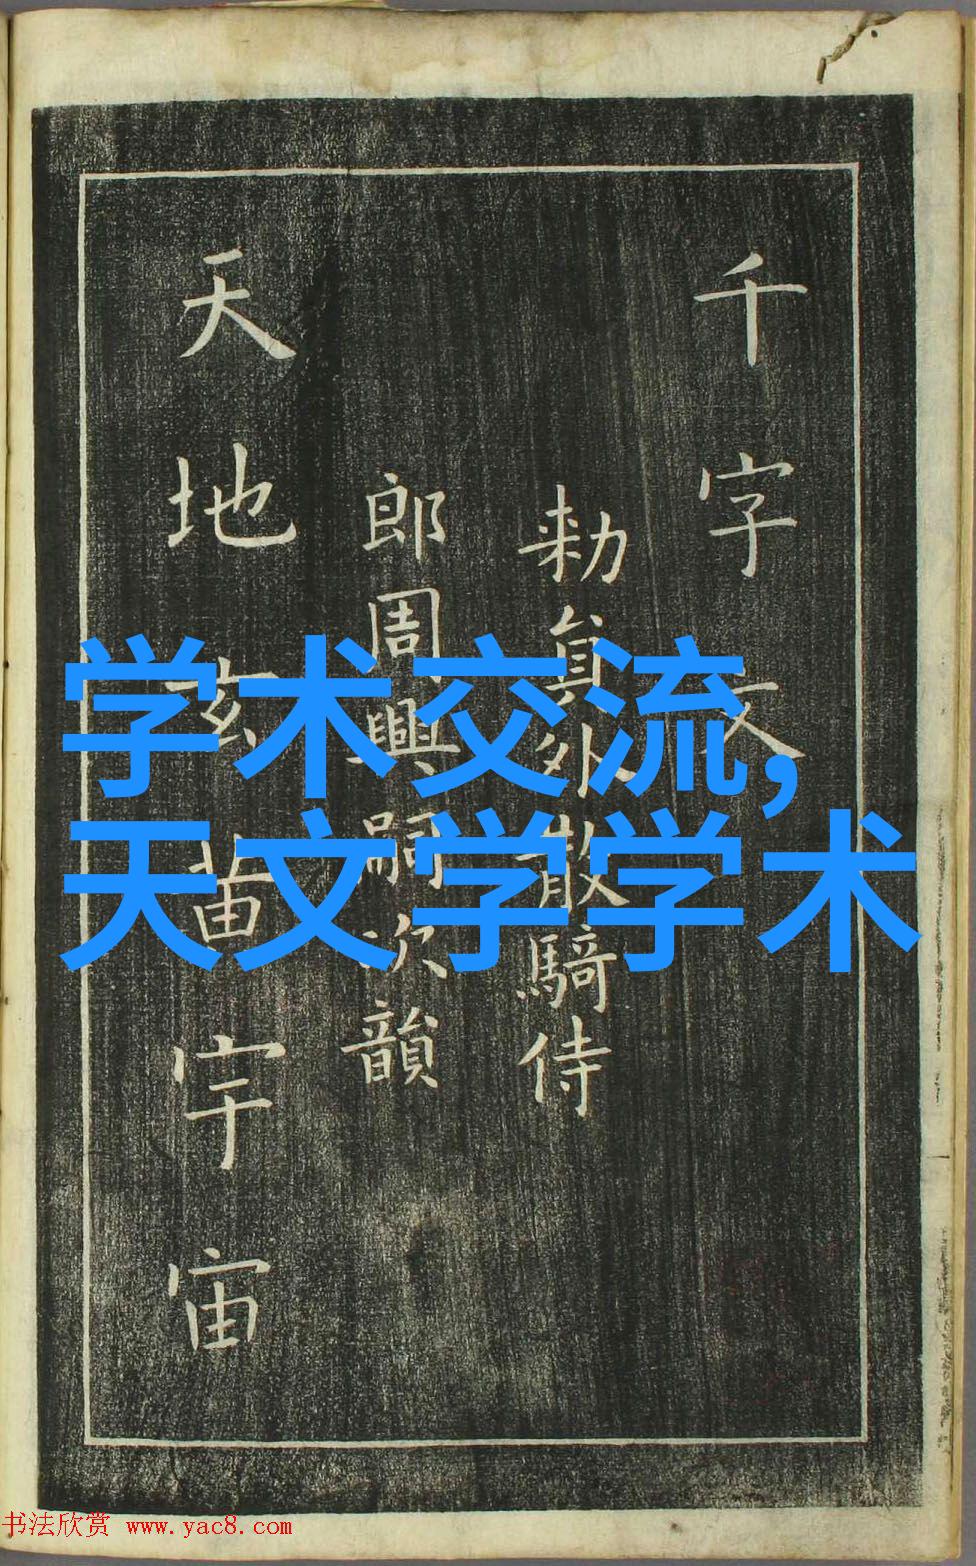 千字文
勅貟外散騎侍
郎周興嗣次韻
天地玄黄宇宙
学术交流,
天文学学术
书法欣赏 www.yac8.com